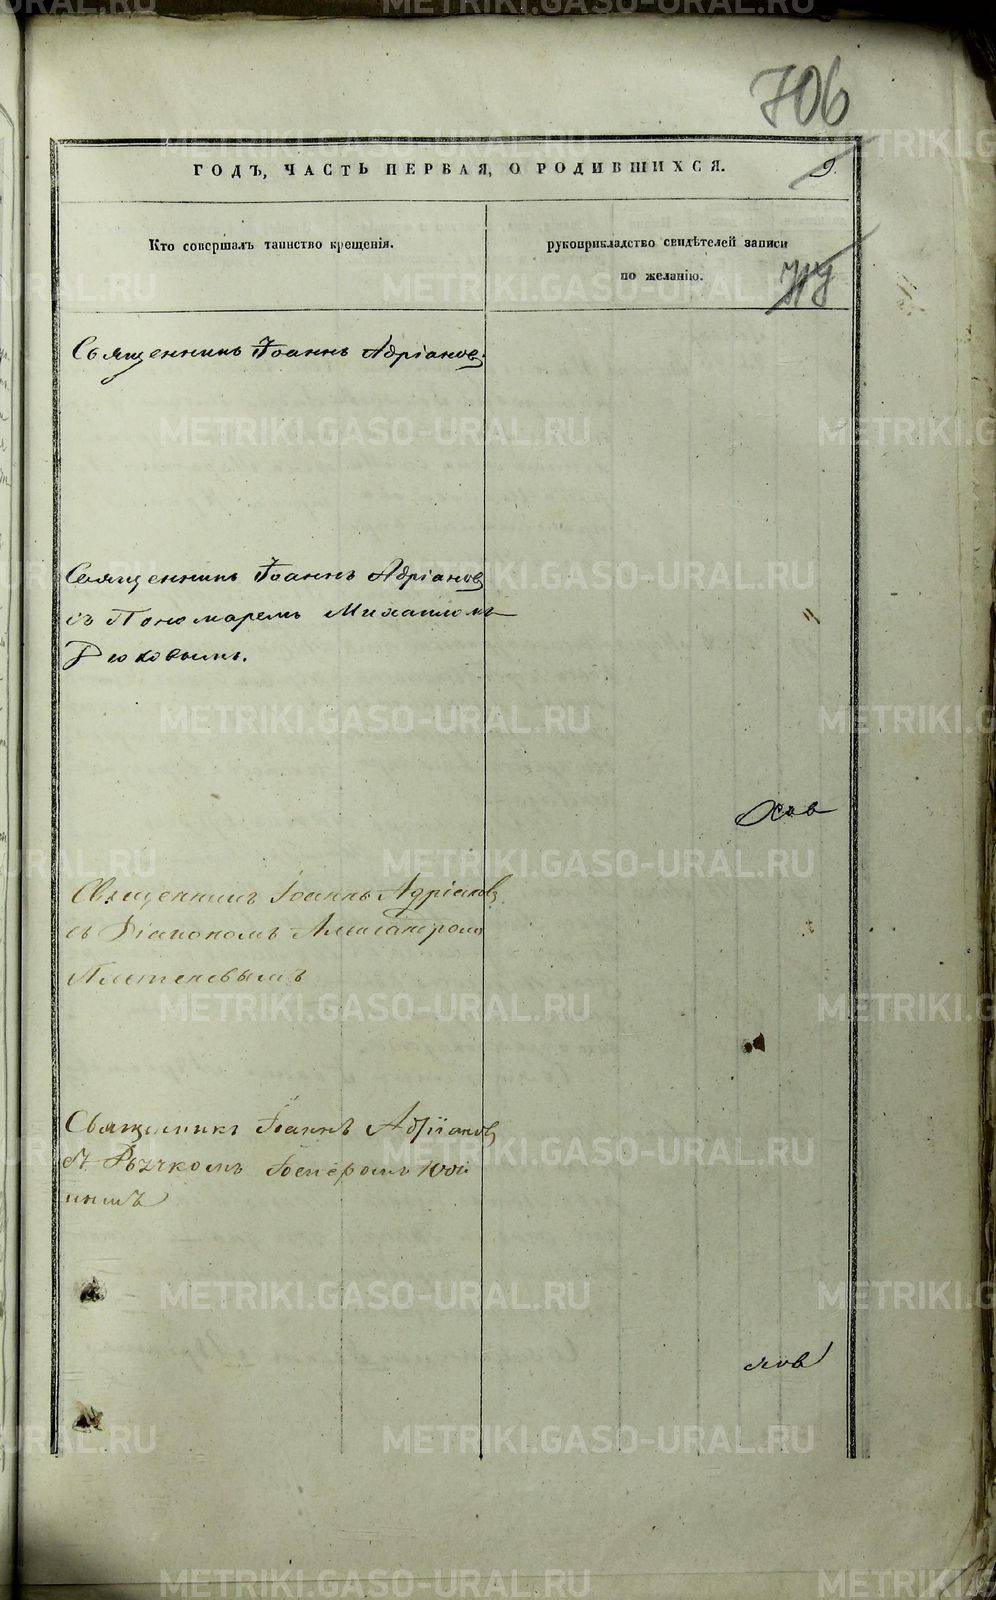 706
ГОДЪ, ЧАСТЬ ПЕРВАЯ, О РОДИВШИХСЯ.
9.
Кто совершалъ таинство крещенія.
рукоприкладство свидѣтелей записи
по желанію.
Священникъ Іоаннъ Адріановъ
Священникъ Іоаннъ Адріановъ
съ Пономаремъ Михаиломъ
Рюковымъ.
Священникъ Іоаннъ Адріановъ
съ Діакономъ Александромъ
Священникъ Іоаннъ Адріановъ
METRIKI.GASO-URAL.RU